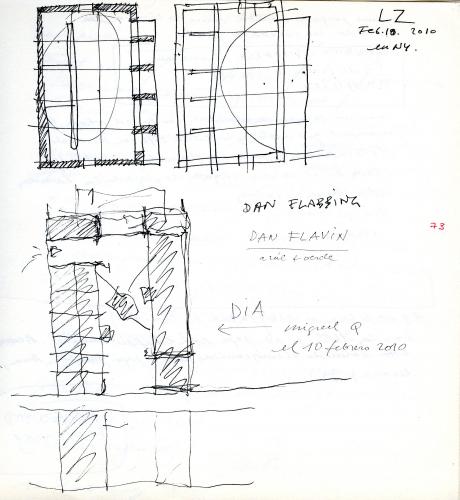 LZ
Feb. 10. 2010
en NY.
DAN FLABBING
DAN FLAVIN
azul + verde
73
DiA
miguel Q
el 10 febrero 2010
1